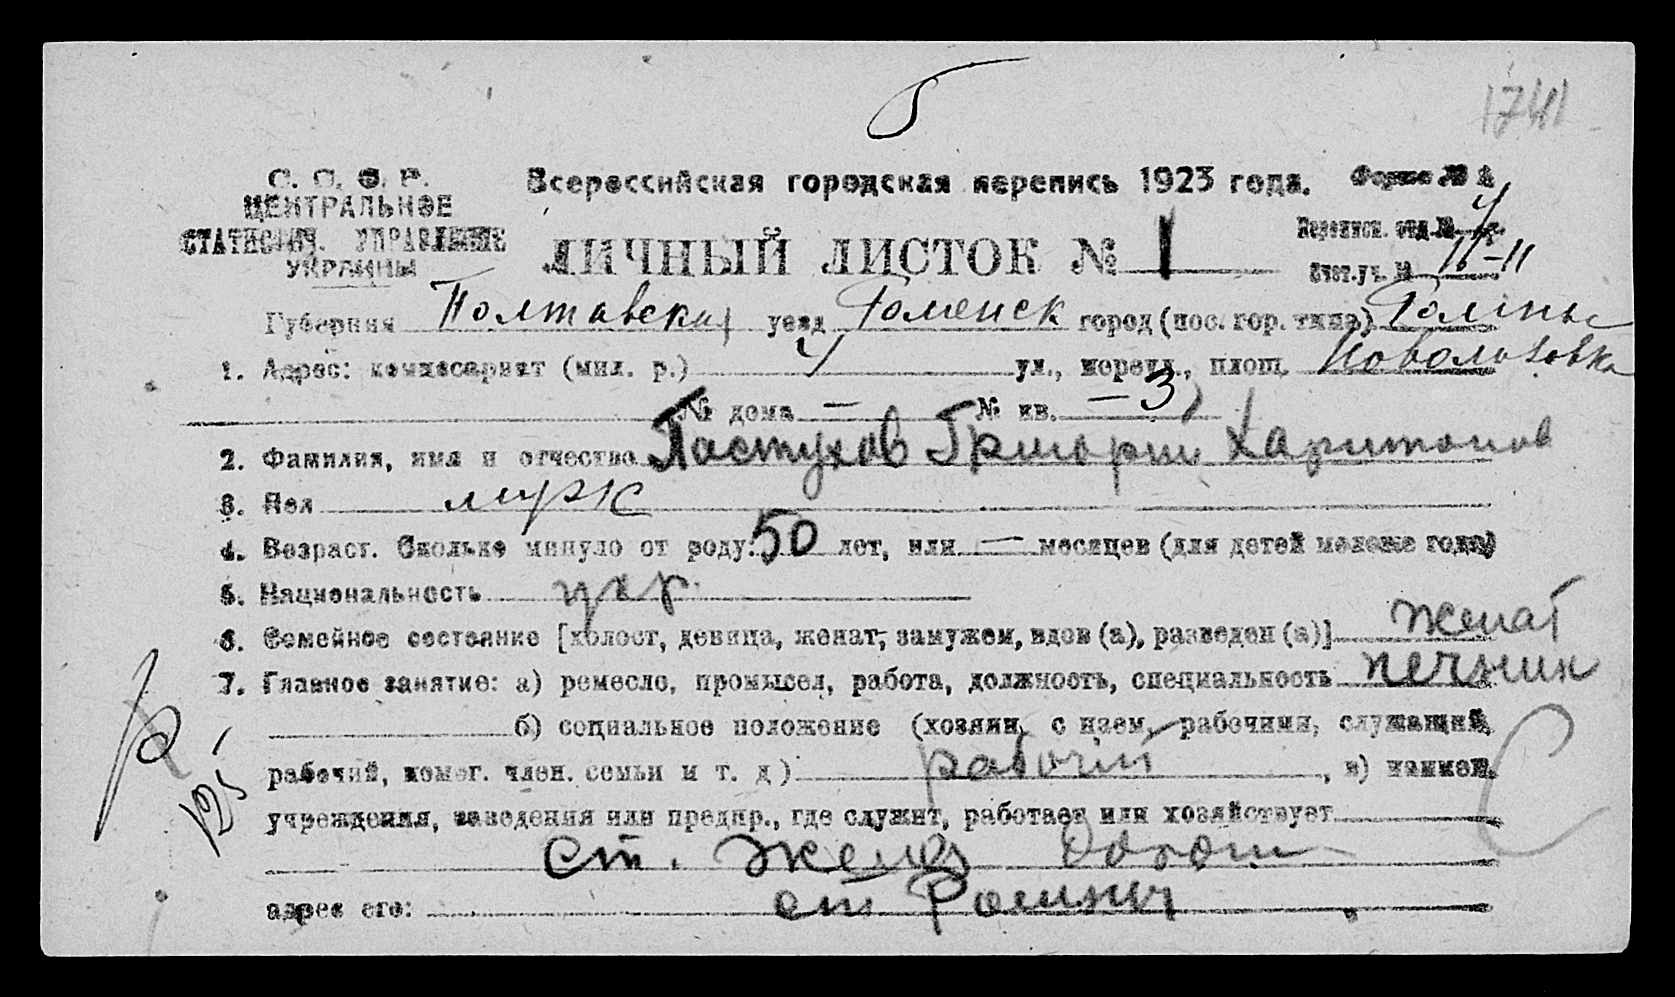 1741
С. С. Ф. Р.
ЦЕНТРАЛЬНОЕ
СТАТИСТИЧ. УПРАВЛЕНИЕ
УКРАИНЫ
Всероссийская городская перепись 1923 года.
Форма № 1
Переписн. отд. №
Счет. уч. № 16-11
ЛИЧНЫЙ ЛИСТОК № 1
Губерния Полтавская уезд Роменск город (пос. гор. типа) Ромны
1. Адрес: комиссариат (мил. р.) ул., переул., площ.
№ дома — № кв. — 3
2. Фамилия, имя и отчество Пастухов Григорий Харитонов
3. Пол мужс
4. Возраст. Сколько минуло от роду: 50 лет, или — месяцев (для детей моложе года)
5. Национальность укр.
6. Семейное состояние [холост, девица, женат, замужем, вдов (а), разведен (а)] женат
7. Главное занятие: а) ремесло, промысел, работа, должность, специальность печник
б) социальное положение (хозяин, с наем. рабочими, служащий,
рабочий, помог. член. семьи и т. д) рабочий, в) наимен.
учреждения, заведения или предпр., где служит, работает или хозяйствует
ст. Желез дорог
адрес его: ст Ромны
125